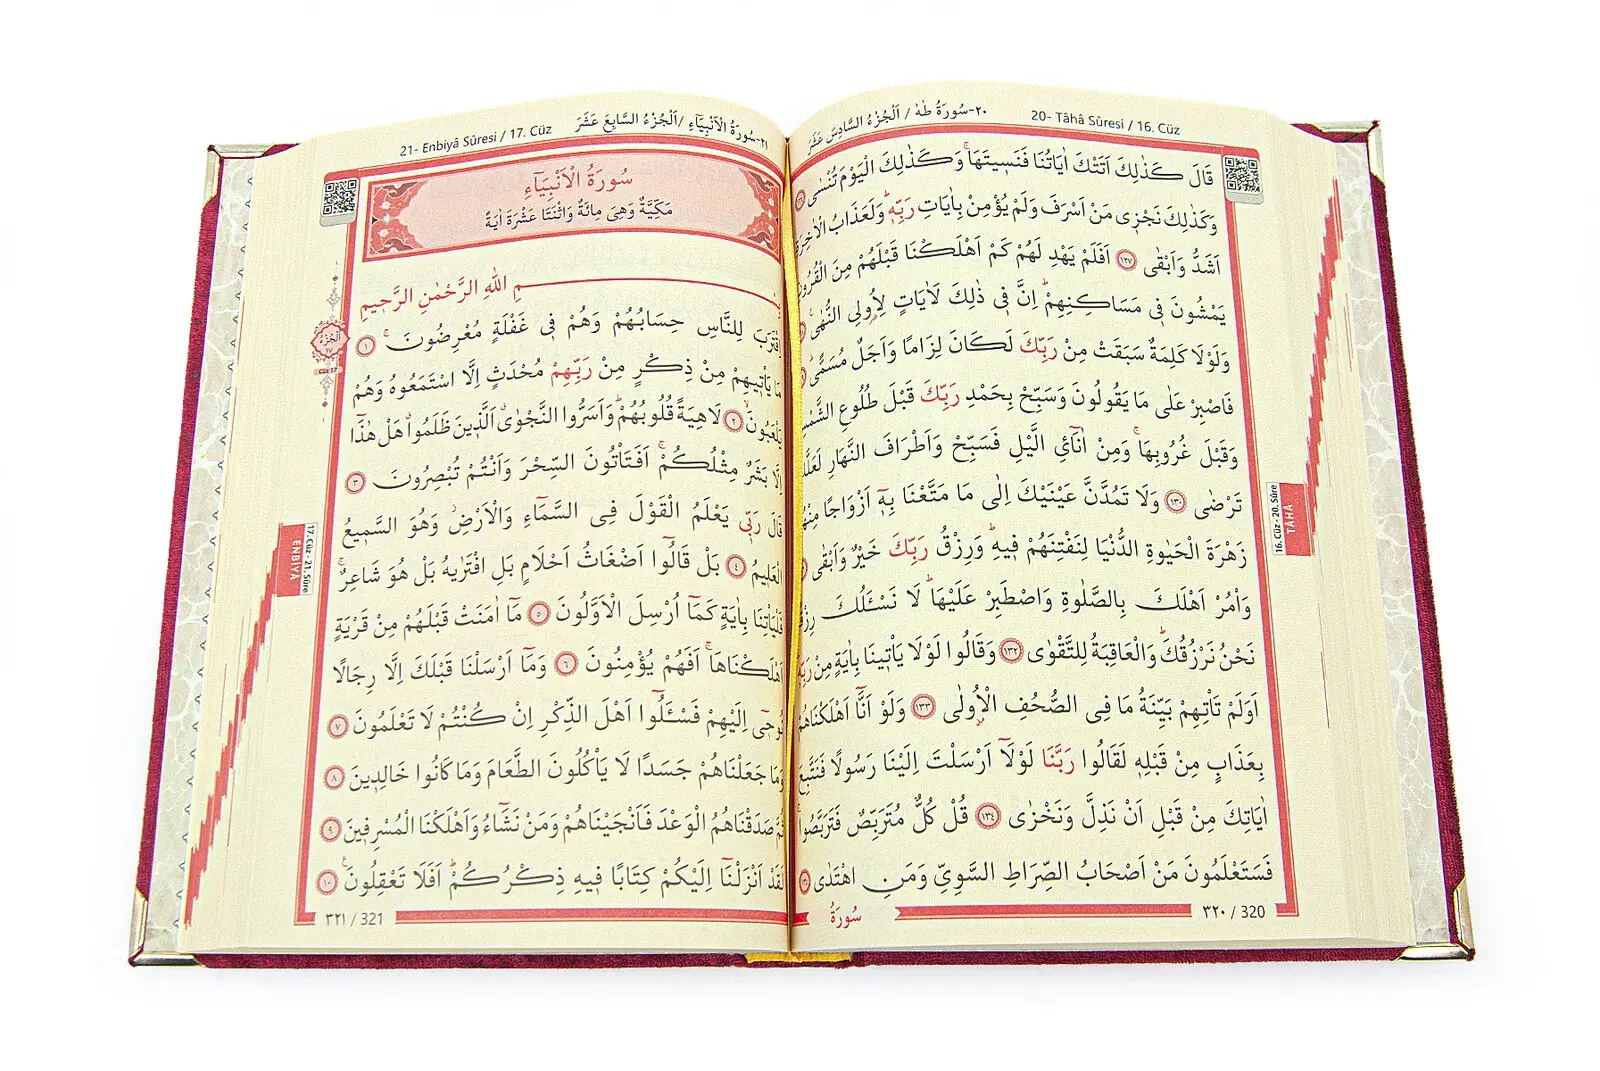 20- Tâhâ Sûresi / 16. Cüz
٢٠-سُورَةُ طٰهٰ / اَلْجُزْءُ السَّادِسَ عَشَرَ
قَالَ كَذٰلِكَ اَتَتْكَ اٰيَاتُنَا فَنَسٖيتَهَاۚ وَكَذٰلِكَ الْيَوْمَ تُنْسٰى
وَكَذٰلِكَ نَجْزٖى مَنْ اَسْرَفَ وَلَمْ يُؤْمِنْ بِاٰيَاتِ رَبِّهٖؕ وَلَعَذَابُ الْاٰخِرَةِ
اَشَدُّ وَاَبْقٰى ١٢٧ اَفَلَمْ يَهْدِ لَهُمْ كَمْ اَهْلَكْنَا قَبْلَهُمْ مِنَ الْقُرُونِ
يَمْشُونَ فٖى مَسَاكِنِهِمْؕ اِنَّ فٖى ذٰلِكَ لَاٰيَاتٍ لِاُولِى النُّهٰى
وَلَوْلَا كَلِمَةٌ سَبَقَتْ مِنْ رَبِّكَ لَكَانَ لِزَامًا وَاَجَلٌ مُسَمًّى
فَاصْبِرْ عَلٰى مَا يَقُولُونَ وَسَبِّحْ بِحَمْدِ رَبِّكَ قَبْلَ طُلُوعِ الشَّمْسِ
وَقَبْلَ غُرُوبِهَاۚ وَمِنْ اٰنَآئِ الَّيْلِ فَسَبِّحْ وَاَطْرَافَ النَّهَارِ لَعَلَّكَ
تَرْضٰى ١٣٠ وَلَا تَمُدَّنَّ عَيْنَيْكَ اِلٰى مَا مَتَّعْنَا بِهٖٓ اَزْوَاجًا مِنْهُمْ
زَهْرَةَ الْحَيٰوةِ الدُّنْيَا لِنَفْتِنَهُمْ فٖيهِؕ وَرِزْقُ رَبِّكَ خَيْرٌ وَاَبْقٰى
وَاْمُرْ اَهْلَكَ بِالصَّلٰوةِ وَاصْطَبِرْ عَلَيْهَاؕ لَا نَسْـَٔلُكَ رِزْقًا
نَحْنُ نَرْزُقُكَؕ وَالْعَاقِبَةُ لِلتَّقْوٰى ١٣٢ وَقَالُوا لَوْلَا يَاْتٖينَا بِاٰيَةٍ مِنْ رَبِّهٖ
اَوَلَمْ تَاْتِهِمْ بَيِّنَةُ مَا فِى الصُّحُفِ الْاُولٰى ١٣٣ وَلَوْ اَنَّٓا اَهْلَكْنَاهُمْ
بِعَذَابٍ مِنْ قَبْلِهٖ لَقَالُوا رَبَّنَا لَوْلَٓا اَرْسَلْتَ اِلَيْنَا رَسُولًا فَنَتَّبِعَ
اٰيَاتِكَ مِنْ قَبْلِ اَنْ نَذِلَّ وَنَخْزٰى ١٣٤ قُلْ كُلٌّ مُتَرَبِّصٌ فَتَرَبَّصُوا
فَسَتَعْلَمُونَ مَنْ اَصْحَابُ الصِّرَاطِ السَّوِىِّ وَمَنِ اهْتَدٰى
٣٢٠ / 320
سُورَةُ
16. Cüz - 20. Sûre
TÂHÂ
21- Enbiyâ Sûresi / 17. Cüz
٢١-سُورَةُ الْاَنْبِيَٓاءِ /اَلْجُزْءُ السَّابِعَ عَشَرَ
سُورَةُ الْاَنْبِيَٓاءِ
مَكِّيَّةٌ وَهِىَ مِائَةٌ وَاثْنَتَا عَشْرَةَ اٰيَةً
مِ اللّٰهِ الرَّحْمٰنِ الرَّحٖيمِ
اِقْتَرَبَ لِلنَّاسِ حِسَابُهُمْ وَهُمْ فٖى غَفْلَةٍ مُعْرِضُونَۚ ١
مَا يَاْتٖيهِمْ مِنْ ذِكْرٍ مِنْ رَبِّهِمْ مُحْدَثٍ اِلَّا اسْتَمَعُوهُ وَهُمْ
يَلْعَبُونَۙ ٢ لَاهِيَةً قُلُوبُهُمْؕ وَاَسَرُّوا النَّجْوٰىۗ اَلَّذٖينَ ظَلَمُواۗ هَلْ هٰذَٓا
اِلَّا بَشَرٌ مِثْلُكُمْۚ اَفَتَاْتُونَ السِّحْرَ وَاَنْتُمْ تُبْصِرُونَ ٣
قَالَ رَبّٖى يَعْلَمُ الْقَوْلَ فِى السَّمَٓاءِ وَالْاَرْضِؗ وَهُوَ السَّمٖيعُ
الْعَلٖيمُ ٤ بَلْ قَالُٓوا اَضْغَاثُ اَحْلَامٍ بَلِ افْتَرٰيهُ بَلْ هُوَ شَاعِرٌۚ
فَلْيَاْتِنَا بِاٰيَةٍ كَمَٓا اُرْسِلَ الْاَوَّلُونَ ٥ مَٓا اٰمَنَتْ قَبْلَهُمْ مِنْ قَرْيَةٍ
اَهْلَكْنَاهَاۚ اَفَهُمْ يُؤْمِنُونَ ٦ وَمَٓا اَرْسَلْنَا قَبْلَكَ اِلَّا رِجَالًا
نُوحٖٓى اِلَيْهِمْ فَسْـَٔلُٓوا اَهْلَ الذِّكْرِ اِنْ كُنْتُمْ لَا تَعْلَمُونَ ٧
وَمَا جَعَلْنَاهُمْ جَسَدًا لَا يَاْكُلُونَ الطَّعَامَ وَمَا كَانُوا خَالِدٖينَ ٨
ثُمَّ صَدَقْنَاهُمُ الْوَعْدَ فَاَنْجَيْنَاهُمْ وَمَنْ نَشَٓاءُ وَاَهْلَكْنَا الْمُسْرِفٖينَ ٩
لَقَدْ اَنْزَلْنَٓا اِلَيْكُمْ كِتَابًا فٖيهِ ذِكْرُكُمْؕ اَفَلَا تَعْقِلُونَۚ ١٠
٣٢١ / 321
اَلْجُزْءُ
١٧
Cüz 17
17. Cüz - 21. Sûre
ENBİYÂ